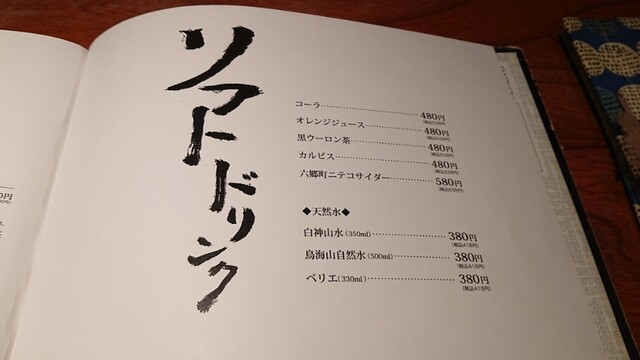 ソフトドリンク
コーラ 480円
(税込528円)
オレンジジュース 480円
(税込528円)
黒ウーロン茶 480円
(税込528円)
カルピス 480円
(税込528円)
六郷町ニテコサイダー 580円
(税込638円)
◆天然水◆
白神山水(350ml) 380円
(税込418円)
鳥海山自然水(500ml) 380円
(税込418円)
ペリエ(330ml) 380円
(税込418円)